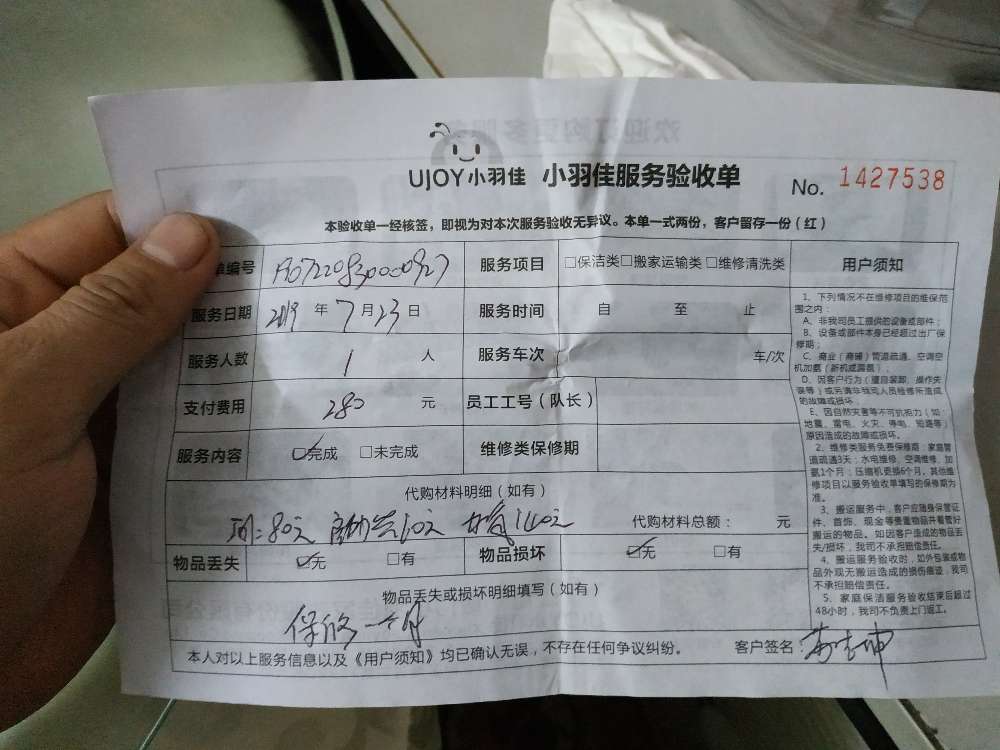 UJOY小羽佳 小羽佳服务验收单 No. 1427538
本验收单一经核签，即视为对本次服务验收无异议。本单一式两份，客户留存一份（红）
单编号 服务项目 □保洁类□搬家运输类□维修清洗类
服务日期 2019 年 7 月 23 日 服务时间 自 至 止
服务人数 1 人 服务车次 车/次
支付费用 280 元 员工工号（队长）
服务内容 ☑完成 □未完成 维修类保修期
代购材料明细（如有）
80元 60元 140元 代购材料总额： 元
物品丢失 ☑无 □有 物品损坏 ☑无 □有
物品丢失或损坏明细填写（如有）
保修一个月
本人对以上服务信息以及《用户须知》均已确认无误，不存在任何争议纠纷。 客户签名：
用户须知
1、下列情况不在维修项目的维保范
围之内：
A、非我司员工提供的设备或部件；
B、设备或部件本身已经超过出厂保
修期；
C、商业（商铺）管道疏通、空调空
机加氨（新机或漏氨）；
D、因客户行为（擅自装卸、操作失
误等）或另请非我司人员检修所造成
的故障或损坏；
E、因自然灾害等不可抗拒力（如：
地震、雷电、火灾、停电、短路等）
原因造成的故障或损坏。
2、维修类服务免费保修期：家庭管
道疏通3天；水电维修、空调维修、加
氨1个月；压缩机更换6个月，其他维
修项目以服务验收单填写的保修期为
准。
3、搬运服务中，客户应随身保管证
件、首饰、现金等贵重物品并看管好
搬运的物品。如因客户造成的物品丢
失/损坏，我司不承担赔偿责任。
4、搬运服务验收时，如外包装或物
品外观无搬运造成的损伤痕迹，我司
不承担赔偿责任。
5、家庭保洁服务验收结束后超过
48小时，我司不负责上门返工。